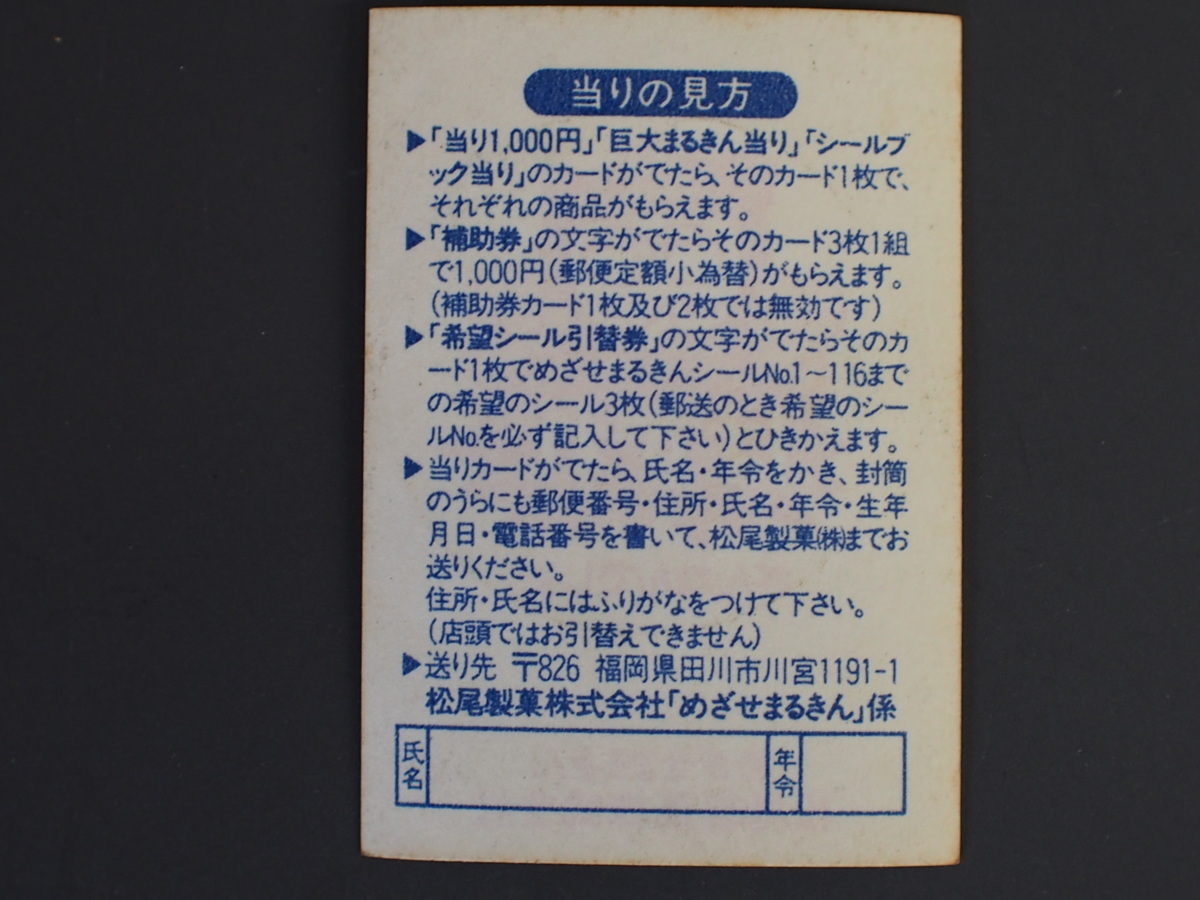 当りの見方
▶「当り1,000円」「巨大まるきん当り」「シールブ
ック当り」のカードがでたら、そのカード1枚で、
それぞれの商品がもらえます。
▶「補助券」の文字がでたらそのカード3枚1組
で1,000円(郵便定額小為替)がもらえます。
(補助券カード1枚及び2枚では無効です)
▶「希望シール引替券」の文字がでたらそのカ
ード1枚でめざせまるきんシールNo.1～116まで
の希望のシール3枚(郵送のとき希望のシー
ルNo.を必ず記入して下さい)とひきかえます。
▶当りカードがでたら、氏名・年令をかき、封筒
のうらにも郵便番号・住所・氏名・年令・生年
月日・電話番号を書いて、松尾製菓㈱までお
送りください。
住所・氏名にはふりがなをつけて下さい。
(店頭ではお引替えできません)
▶送り先 〒826 福岡県田川市川宮1191-1
松尾製菓株式会社「めざせまるきん」係
氏名
年令